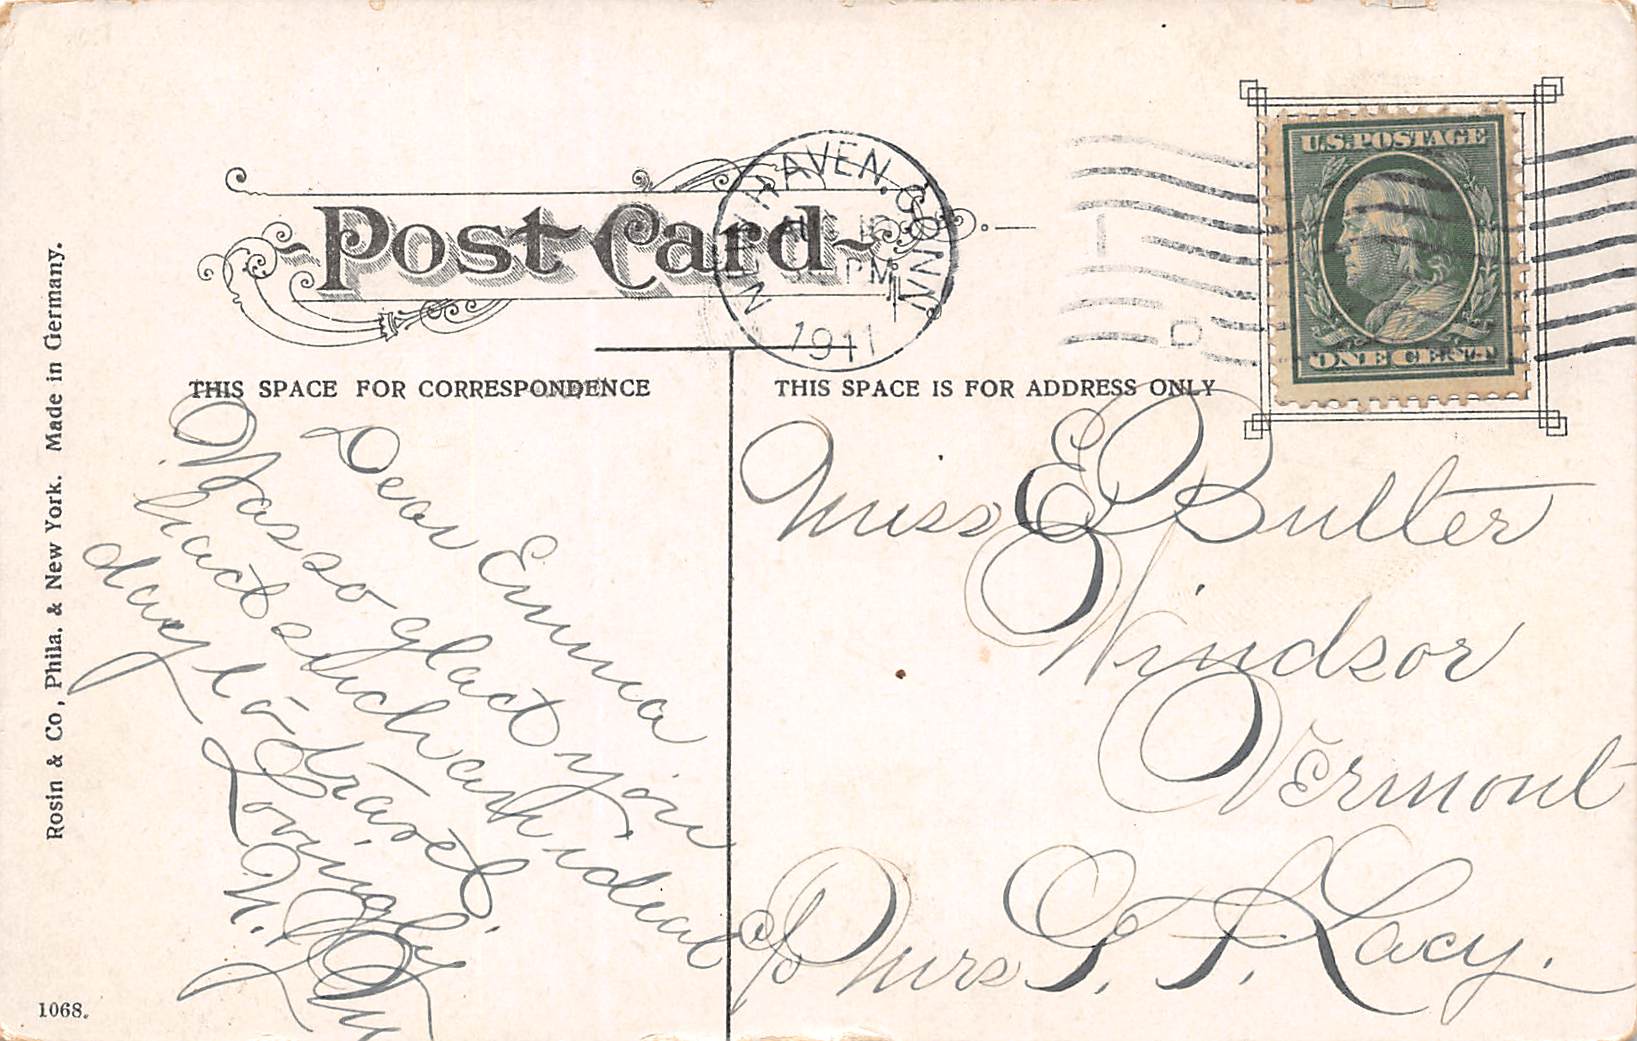 U.S. POSTAGE
ONE CENT
HAVEN, CONN.
PM
1911
Post Card
THIS SPACE FOR CORRESPONDENCE
THIS SPACE IS FOR ADDRESS ONLY
Dear Emma
Was so glad you
had such an ideal
day to travel.
Lovingly
Miss E Butler
Windsor
Vermont
c/o Mrs G. F. Lacy.
Rosin & Co, Phila. & New York. Made in Germany.
1068.